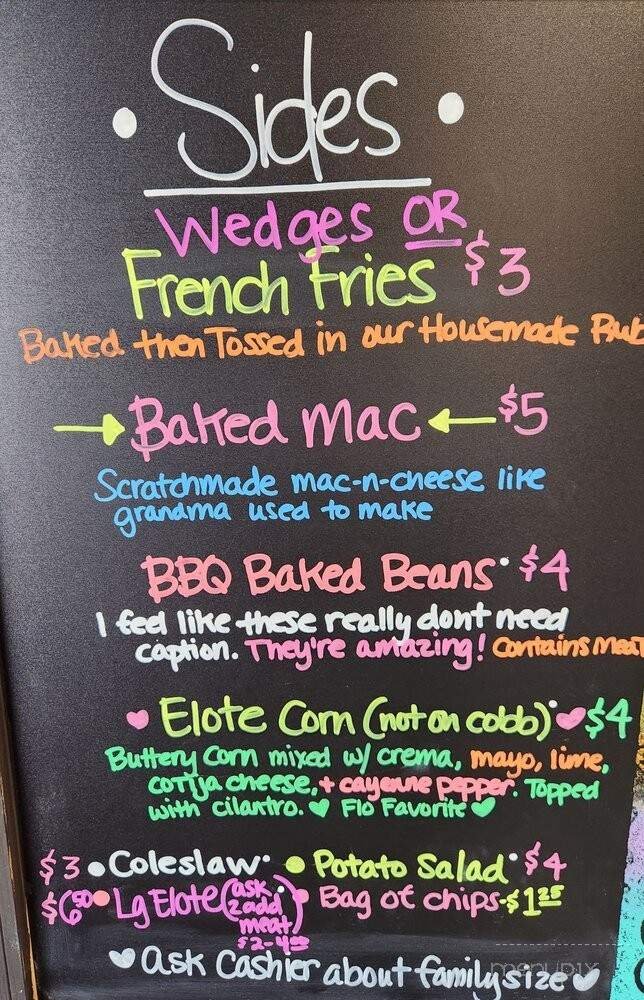 • Sides •
Wedges OR
French Fries $3
Baked then Tossed in our Housemade Rub
→ Baked Mac ← $5
Scratchmade mac-n-cheese like
grandma used to make
BBQ Baked Beans · $4
I feel like these really dont need
caption. They're amazing! Contains Meat
♥ Elote Corn (not on cobb) ♥ $4
Buttery Corn mixed w/ crema, mayo, lime,
cotija cheese, + cayenne pepper. Topped
with cilantro. ♥ Flo Favorite ♥
$3 • Coleslaw · • Potato Salad · $4
$6.50 • Lg Elote (ask 2 add meat) $2-4.00 • Bag of chips - $1.25
♥ Ask Cashier about family size ♥
menupix